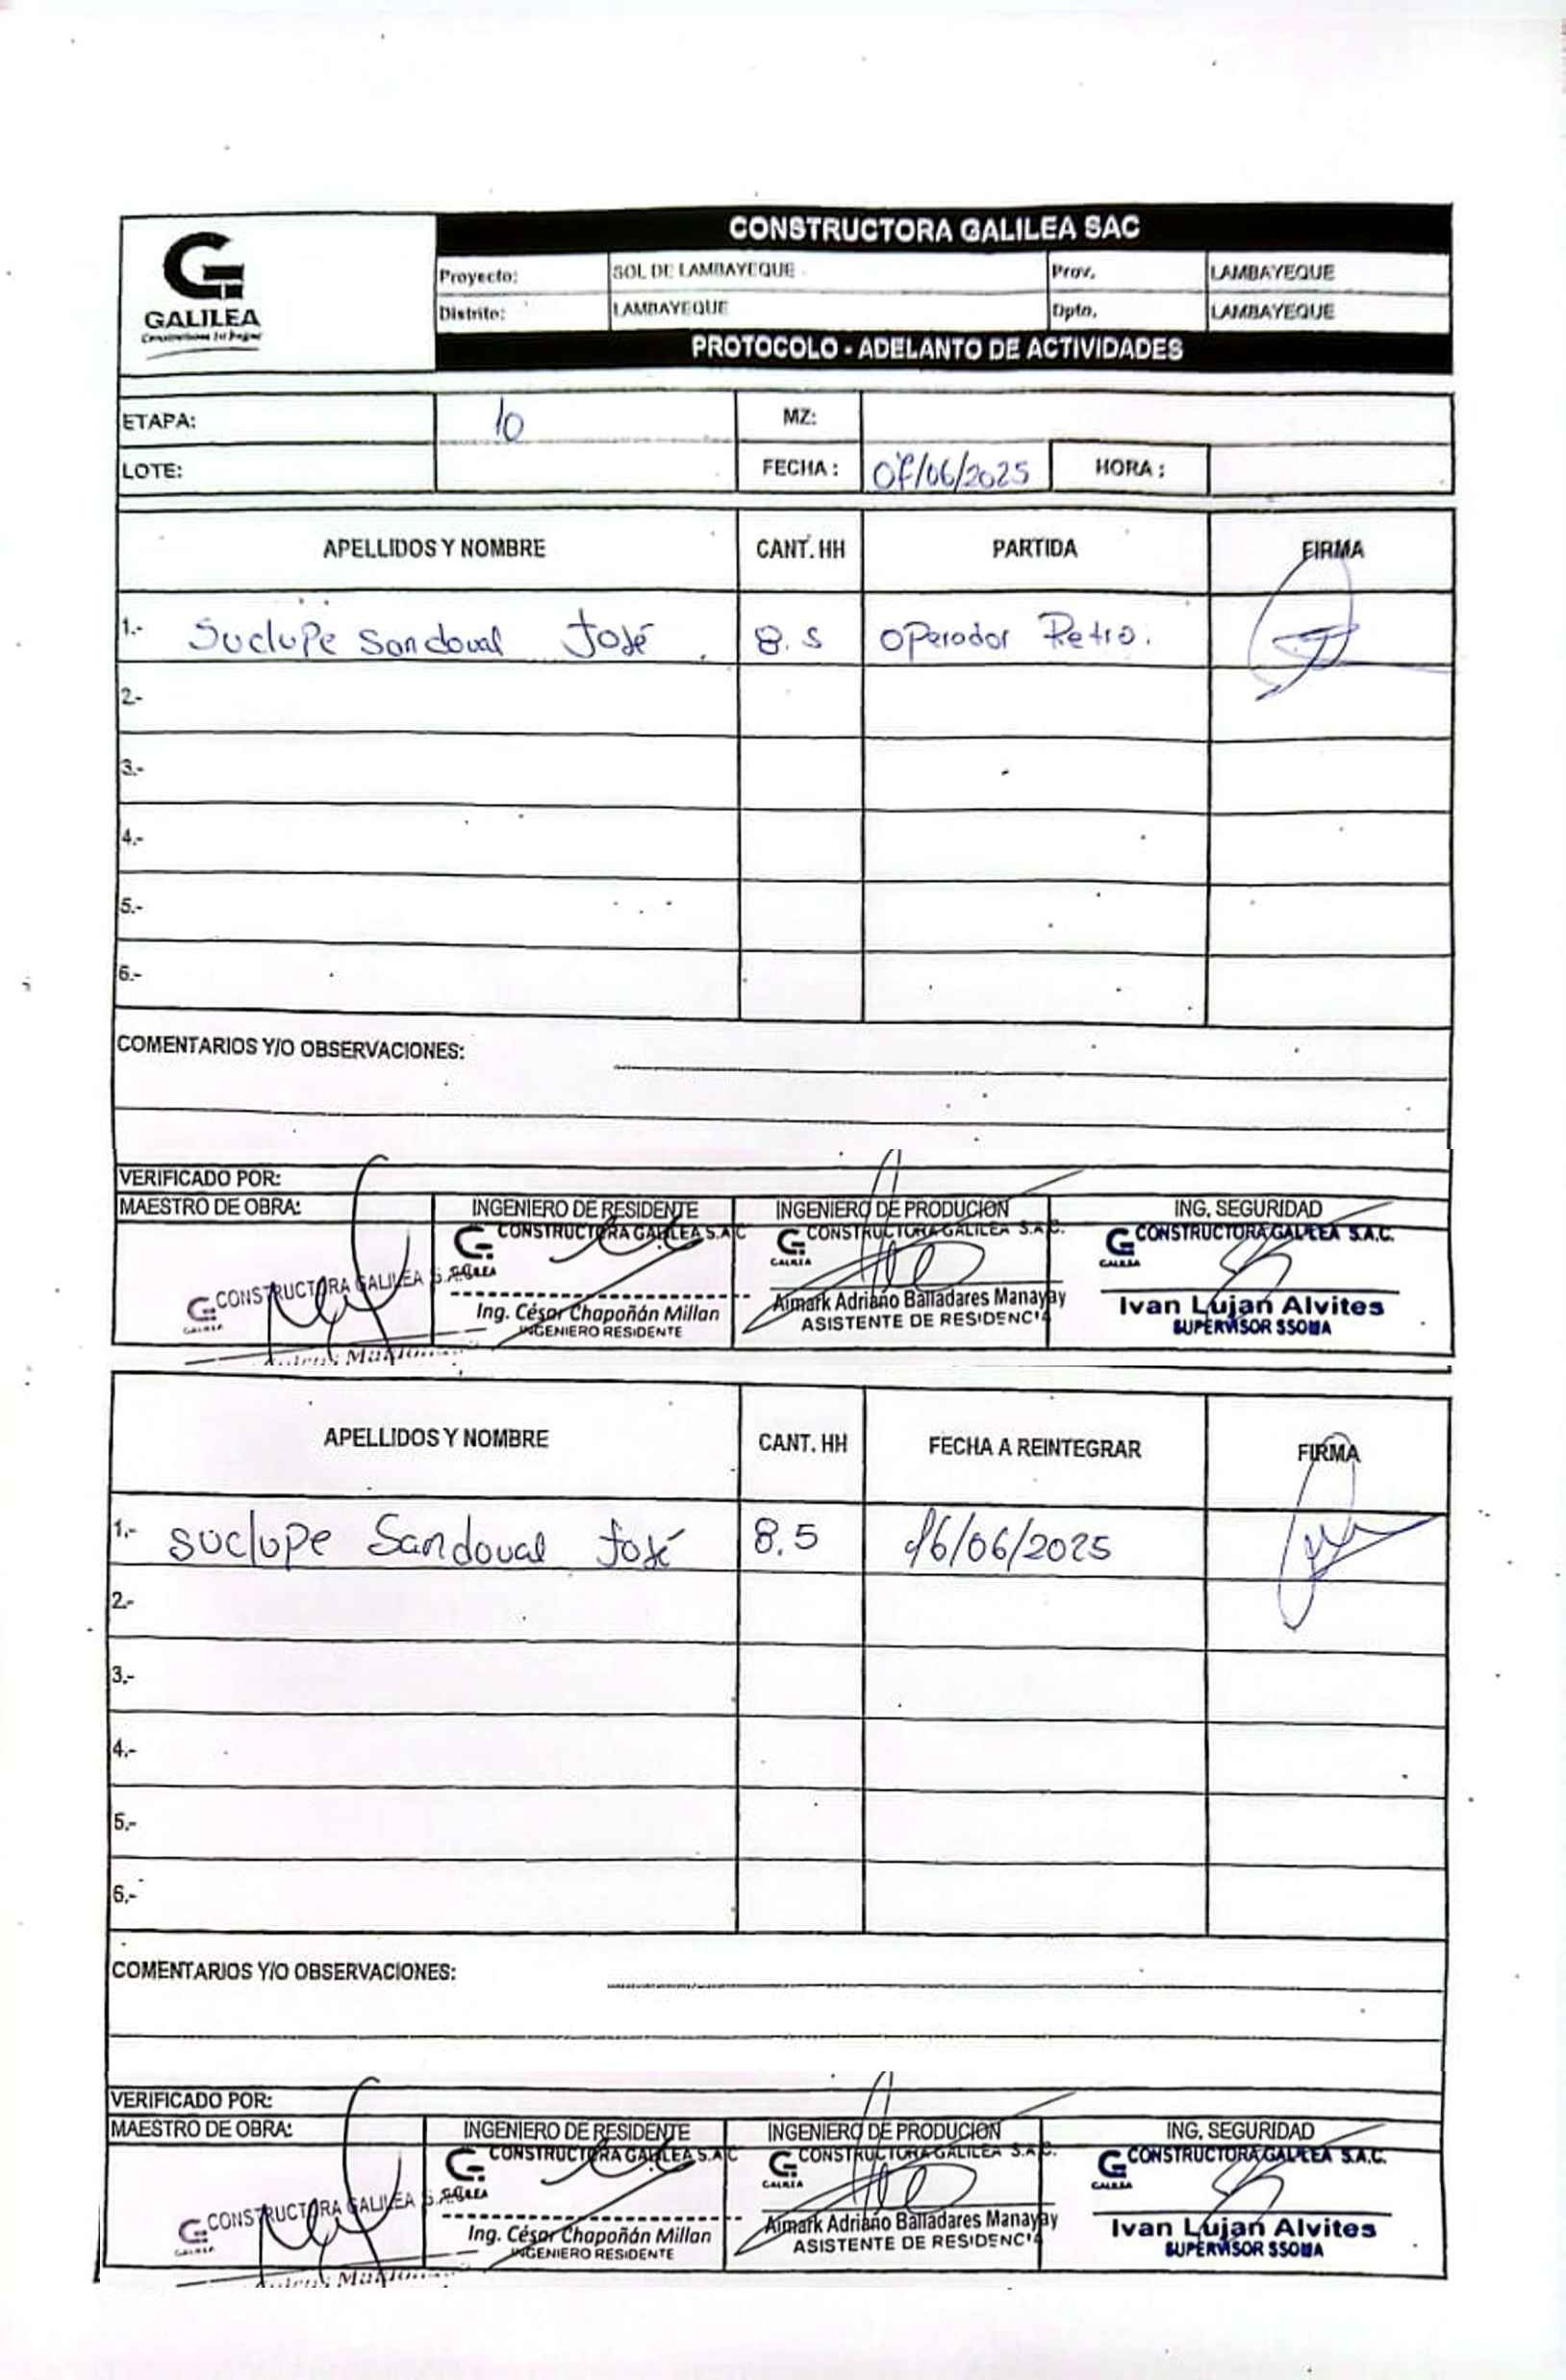 CONSTRUCTORA GALILEA SAC
GALILEA
Proyecto: SOL DE LAMBAYEQUE Prov. LAMBAYEQUE
Distrito: LAMBAYEQUE Dpto. LAMBAYEQUE
PROTOCOLO - ADELANTO DE ACTIVIDADES
ETAPA: 10 MZ:
LOTE: FECHA: 07/06/2025 HORA:
APELLIDOS Y NOMBRE CANT. HH PARTIDA FIRMA
1.- Suclupe Sandoval José 8.5 Operador Retro.
2.-
3.-
4.-
5.-
6.-
COMENTARIOS Y/O OBSERVACIONES:
VERIFICADO POR:
MAESTRO DE OBRA: INGENIERO DE RESIDENTE INGENIERO DE PRODUCION ING. SEGURIDAD
CONSTRUCTORA GALILEA S.A.C CONSTRUCTORA GALILEA S.A.C CONSTRUCTORA GALILEA S.A.C. CONSTRUCTORA GALILEA S.A.C.
GALILEA GALILEA GALILEA GALILEA
Ing. César Chapoñán Millan Aimark Adriano Balladares Manayay Ivan Lujan Alvites
INGENIERO RESIDENTE ASISTENTE DE RESIDENCIA SUPERVISOR SSOMA
APELLIDOS Y NOMBRE CANT. HH FECHA A REINTEGRAR FIRMA
1.- Suclupe Sandoval José 8.5 16/06/2025
2.-
3.-
4.-
5.-
6.-
COMENTARIOS Y/O OBSERVACIONES:
VERIFICADO POR:
MAESTRO DE OBRA: INGENIERO DE RESIDENTE INGENIERO DE PRODUCION ING. SEGURIDAD
CONSTRUCTORA GALILEA S.A.C CONSTRUCTORA GALILEA S.A.C CONSTRUCTORA GALILEA S.A.C. CONSTRUCTORA GALILEA S.A.C.
GALILEA GALILEA GALILEA GALILEA
Ing. César Chapoñán Millan Aimark Adriano Balladares Manayay Ivan Lujan Alvites
INGENIERO RESIDENTE ASISTENTE DE RESIDENCIA SUPERVISOR SSOMA